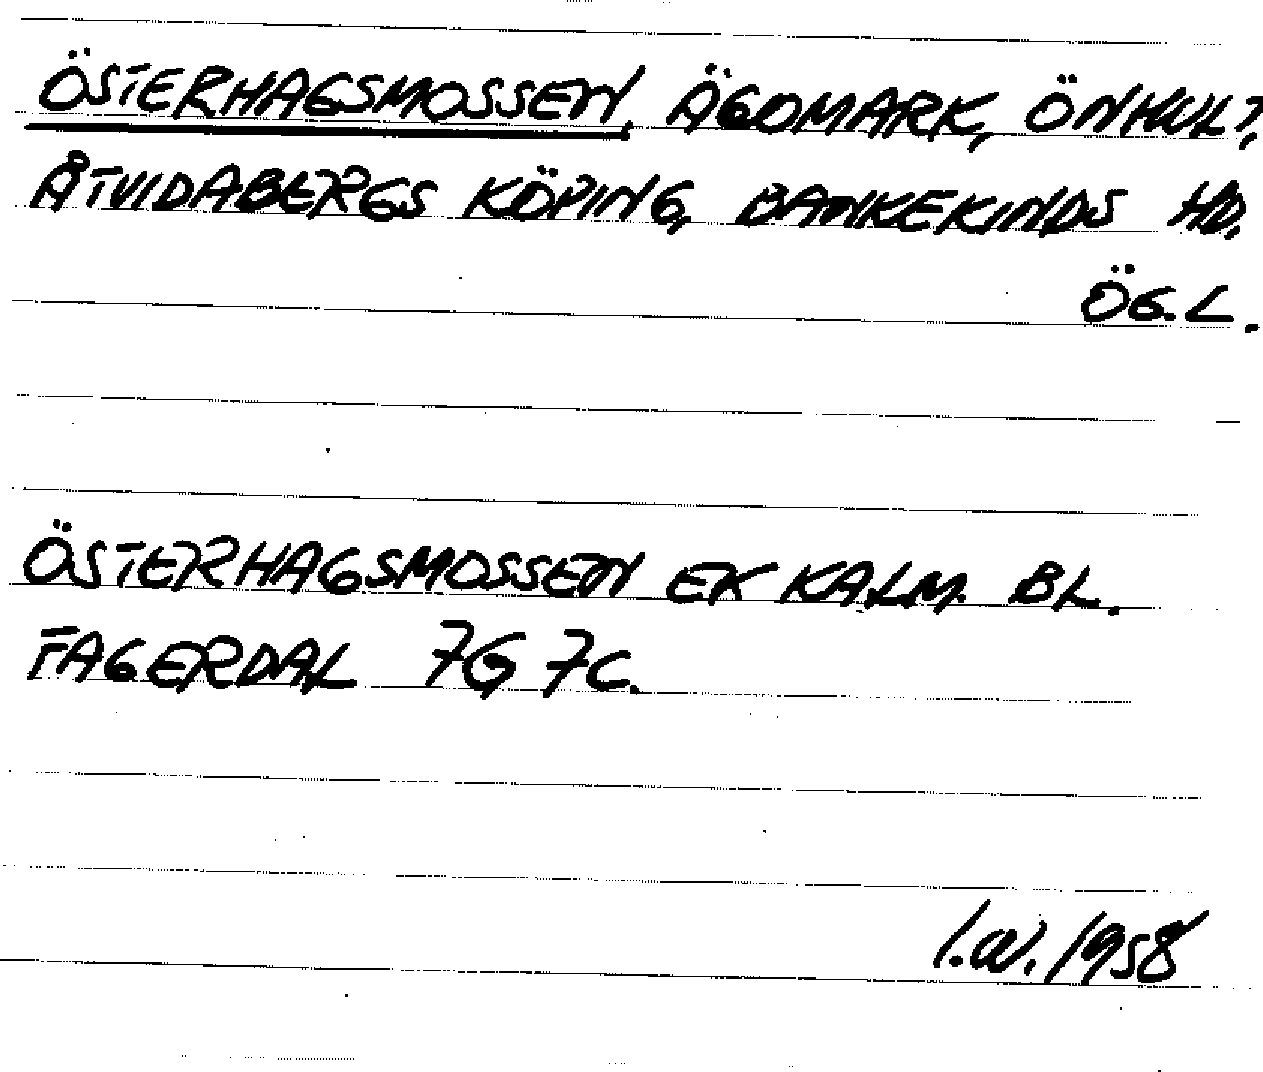 ÖSTERHAGSMOSSEN, ÄGOMARK, ÖNHULT,
ÅTVIDABERGS KÖPING, BANKEKINDS HD,
ÖG. L.
ÖSTERHAGSMOSSEN EK KALM. BL.
FAGERDAL 7G 7C.
I.W. 1958